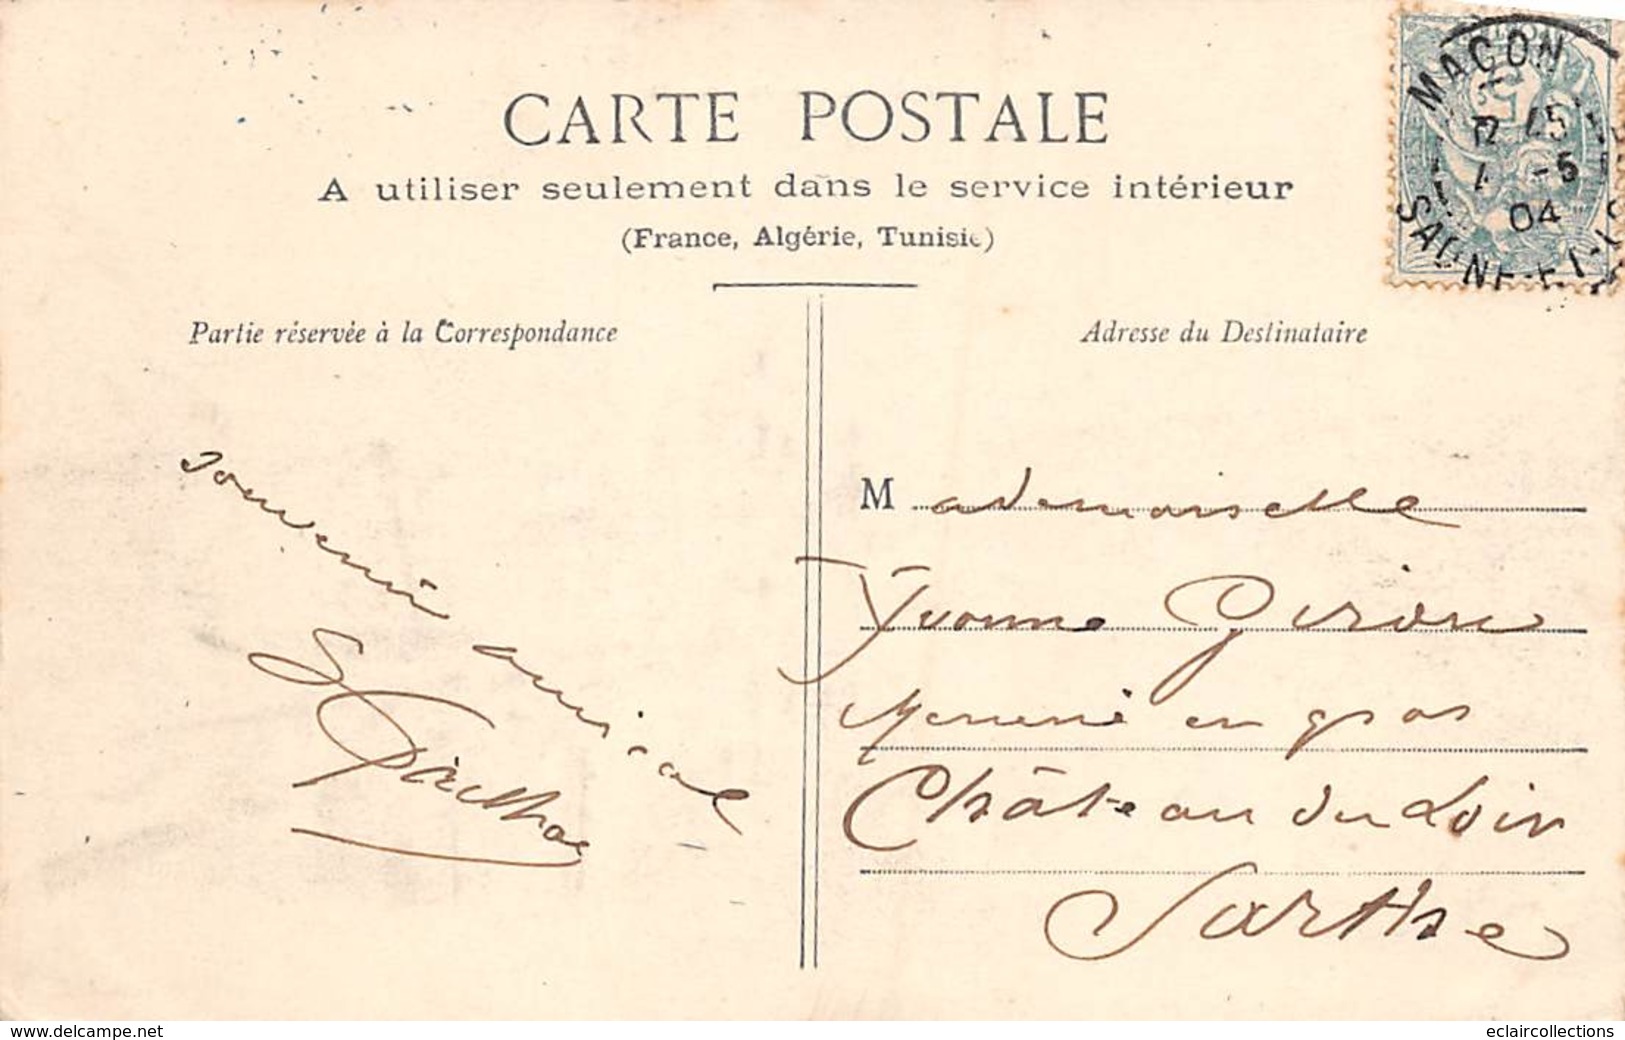 CARTE POSTALE
A utiliser seulement dans le service intérieur
(France, Algérie, Tunisie)
Partie réservée à la Correspondance
Adresse du Destinataire
MACON
15
-5
04
SAONE-ET-
souvenir amical
Mademoiselle
Yvonne Giron
en gros
Château du Loir
Sarthe
www.delcampe.net
eclaircollections